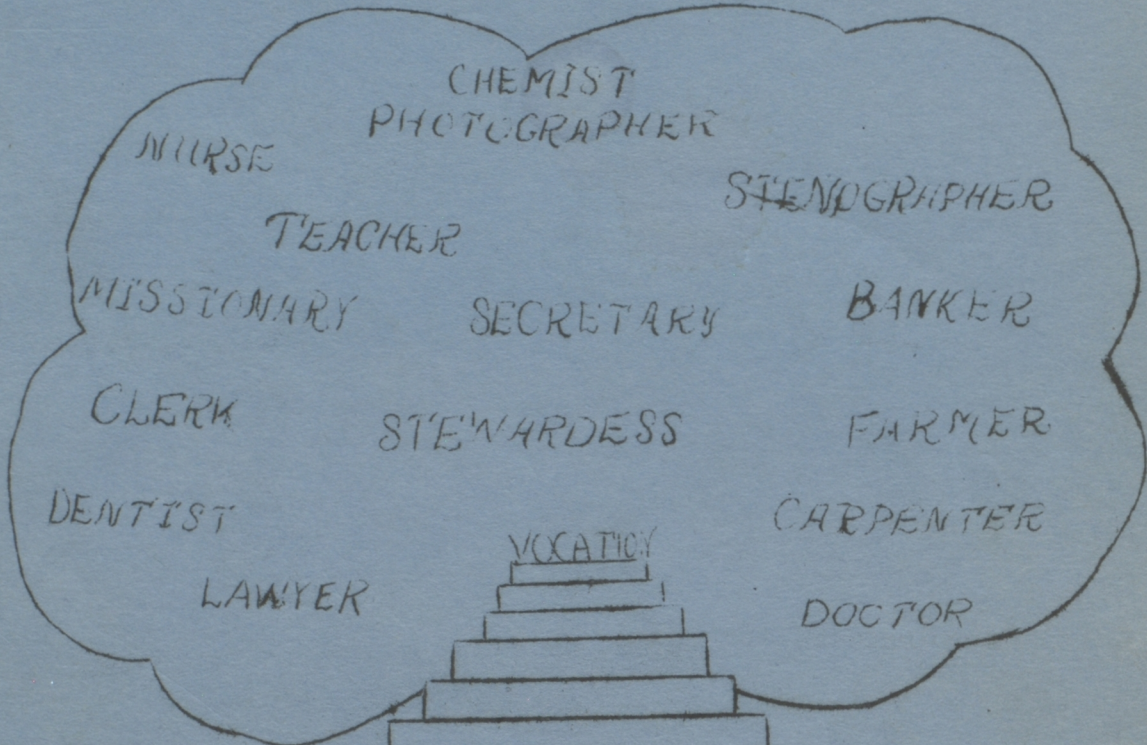 CHEMIST
PHOTOGRAPHER
NURSE
STENOGRAPHER
TEACHER
MISSIONARY
SECRETARY
BANKER
CLERK
STEWARDESS
FARMER
DENTIST
CARPENTER
VOCATION
LAWYER
DOCTOR